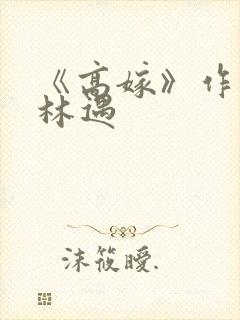 《高嫁》作
林遇
沫筱曖.